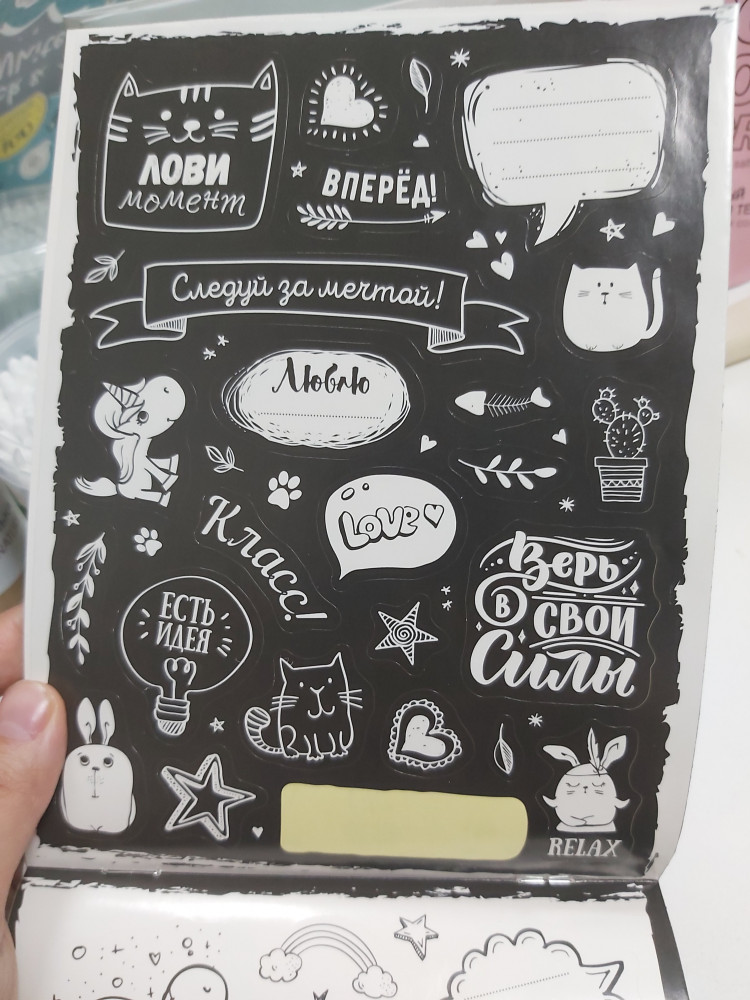 ЛОВИ
момент
ВПЕРЁД!
Следуй за мечтой!
Люблю
Класс!
LOVE
ЕСТЬ
ИДЕЯ
Верь
в СВОИ
Силы
RELAX